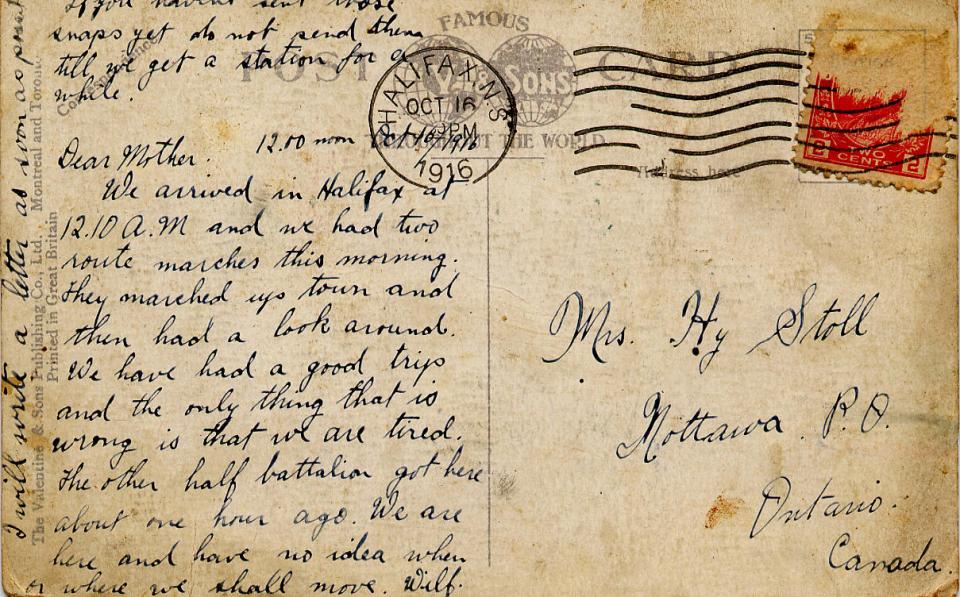 If you haven't sent those
snaps yet do not send them
till we get a station for a
while.
12.00 noon Oct 16 1916
Dear Mother.
We arrived in Halifax at
12.10 A.M and we had two
route marches this morning.
They marched up town and
then had a look around.
We have had a good trip
and the only thing that is
wrong is that we are tired.
The other half battalion got here
about one hour ago. We are
here and have no idea when
or where we shall move. Wilf.
I will write a letter as soon as
The Valentine & Sons Publishing Co., Ltd. Montreal and Toronto
Printed in Great Britain
FAMOUS
POST CARD
& SONS
THROUGHOUT THE WORLD
HALIFAX, N.S.
OCT 16
PM
1916
Address here
2 TWO 2
CENTS
Mrs. Hy Stoll
Nottawa P.O.
Ontario.
Canada.